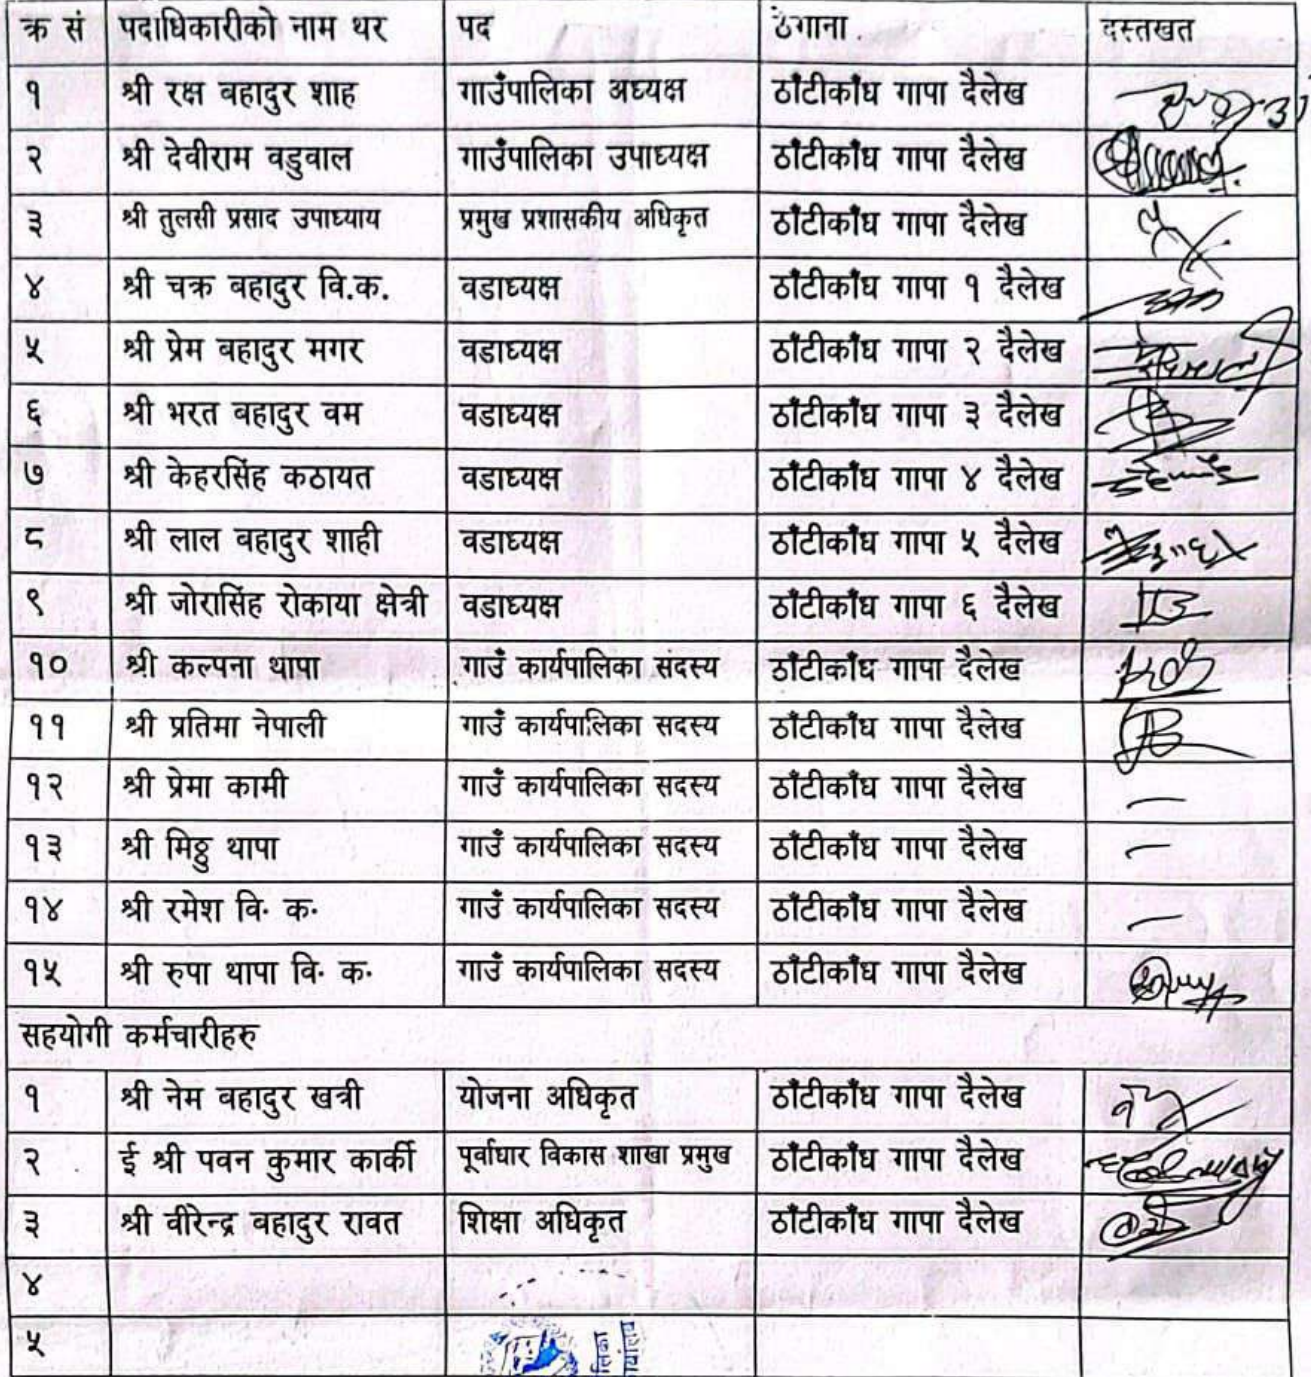 क्र सं पदाधिकारीको नाम थर पद ठेगाना दस्तखत
१ श्री रक्ष बहादुर शाह गाउँपालिका अध्यक्ष ठाँटीकाँध गापा दैलेख
२ श्री देवीराम वडुवाल गाउँपालिका उपाध्यक्ष ठाँटीकाँध गापा दैलेख
३ श्री तुलसी प्रसाद उपाध्याय प्रमुख प्रशासकीय अधिकृत ठाँटीकाँध गापा दैलेख
४ श्री चक्र बहादुर वि.क. वडाध्यक्ष ठाँटीकाँध गापा १ दैलेख
५ श्री प्रेम बहादुर मगर वडाध्यक्ष ठाँटीकाँध गापा २ दैलेख
६ श्री भरत बहादुर वम वडाध्यक्ष ठाँटीकाँध गापा ३ दैलेख
७ श्री केहरसिंह कठायत वडाध्यक्ष ठाँटीकाँध गापा ४ दैलेख
८ श्री लाल बहादुर शाही वडाध्यक्ष ठाँटीकाँध गापा ५ दैलेख
९ श्री जोरासिंह रोकाया क्षेत्री वडाध्यक्ष ठाँटीकाँध गापा ६ दैलेख
१० श्री कल्पना थापा गाउँ कार्यपालिका सदस्य ठाँटीकाँध गापा दैलेख
११ श्री प्रतिमा नेपाली गाउँ कार्यपालिका सदस्य ठाँटीकाँध गापा दैलेख
१२ श्री प्रेमा कामी गाउँ कार्यपालिका सदस्य ठाँटीकाँध गापा दैलेख
१३ श्री मिठ्ठु थापा गाउँ कार्यपालिका सदस्य ठाँटीकाँध गापा दैलेख
१४ श्री रमेश वि. क. गाउँ कार्यपालिका सदस्य ठाँटीकाँध गापा दैलेख
१५ श्री रुपा थापा वि. क. गाउँ कार्यपालिका सदस्य ठाँटीकाँध गापा दैलेख
सहयोगी कर्मचारीहरु
१ श्री नेम बहादुर खत्री योजना अधिकृत ठाँटीकाँध गापा दैलेख
२ ई श्री पवन कुमार कार्की पूर्वाधार विकास शाखा प्रमुख ठाँटीकाँध गापा दैलेख
३ श्री वीरेन्द्र बहादुर रावत शिक्षा अधिकृत ठाँटीकाँध गापा दैलेख
४
५